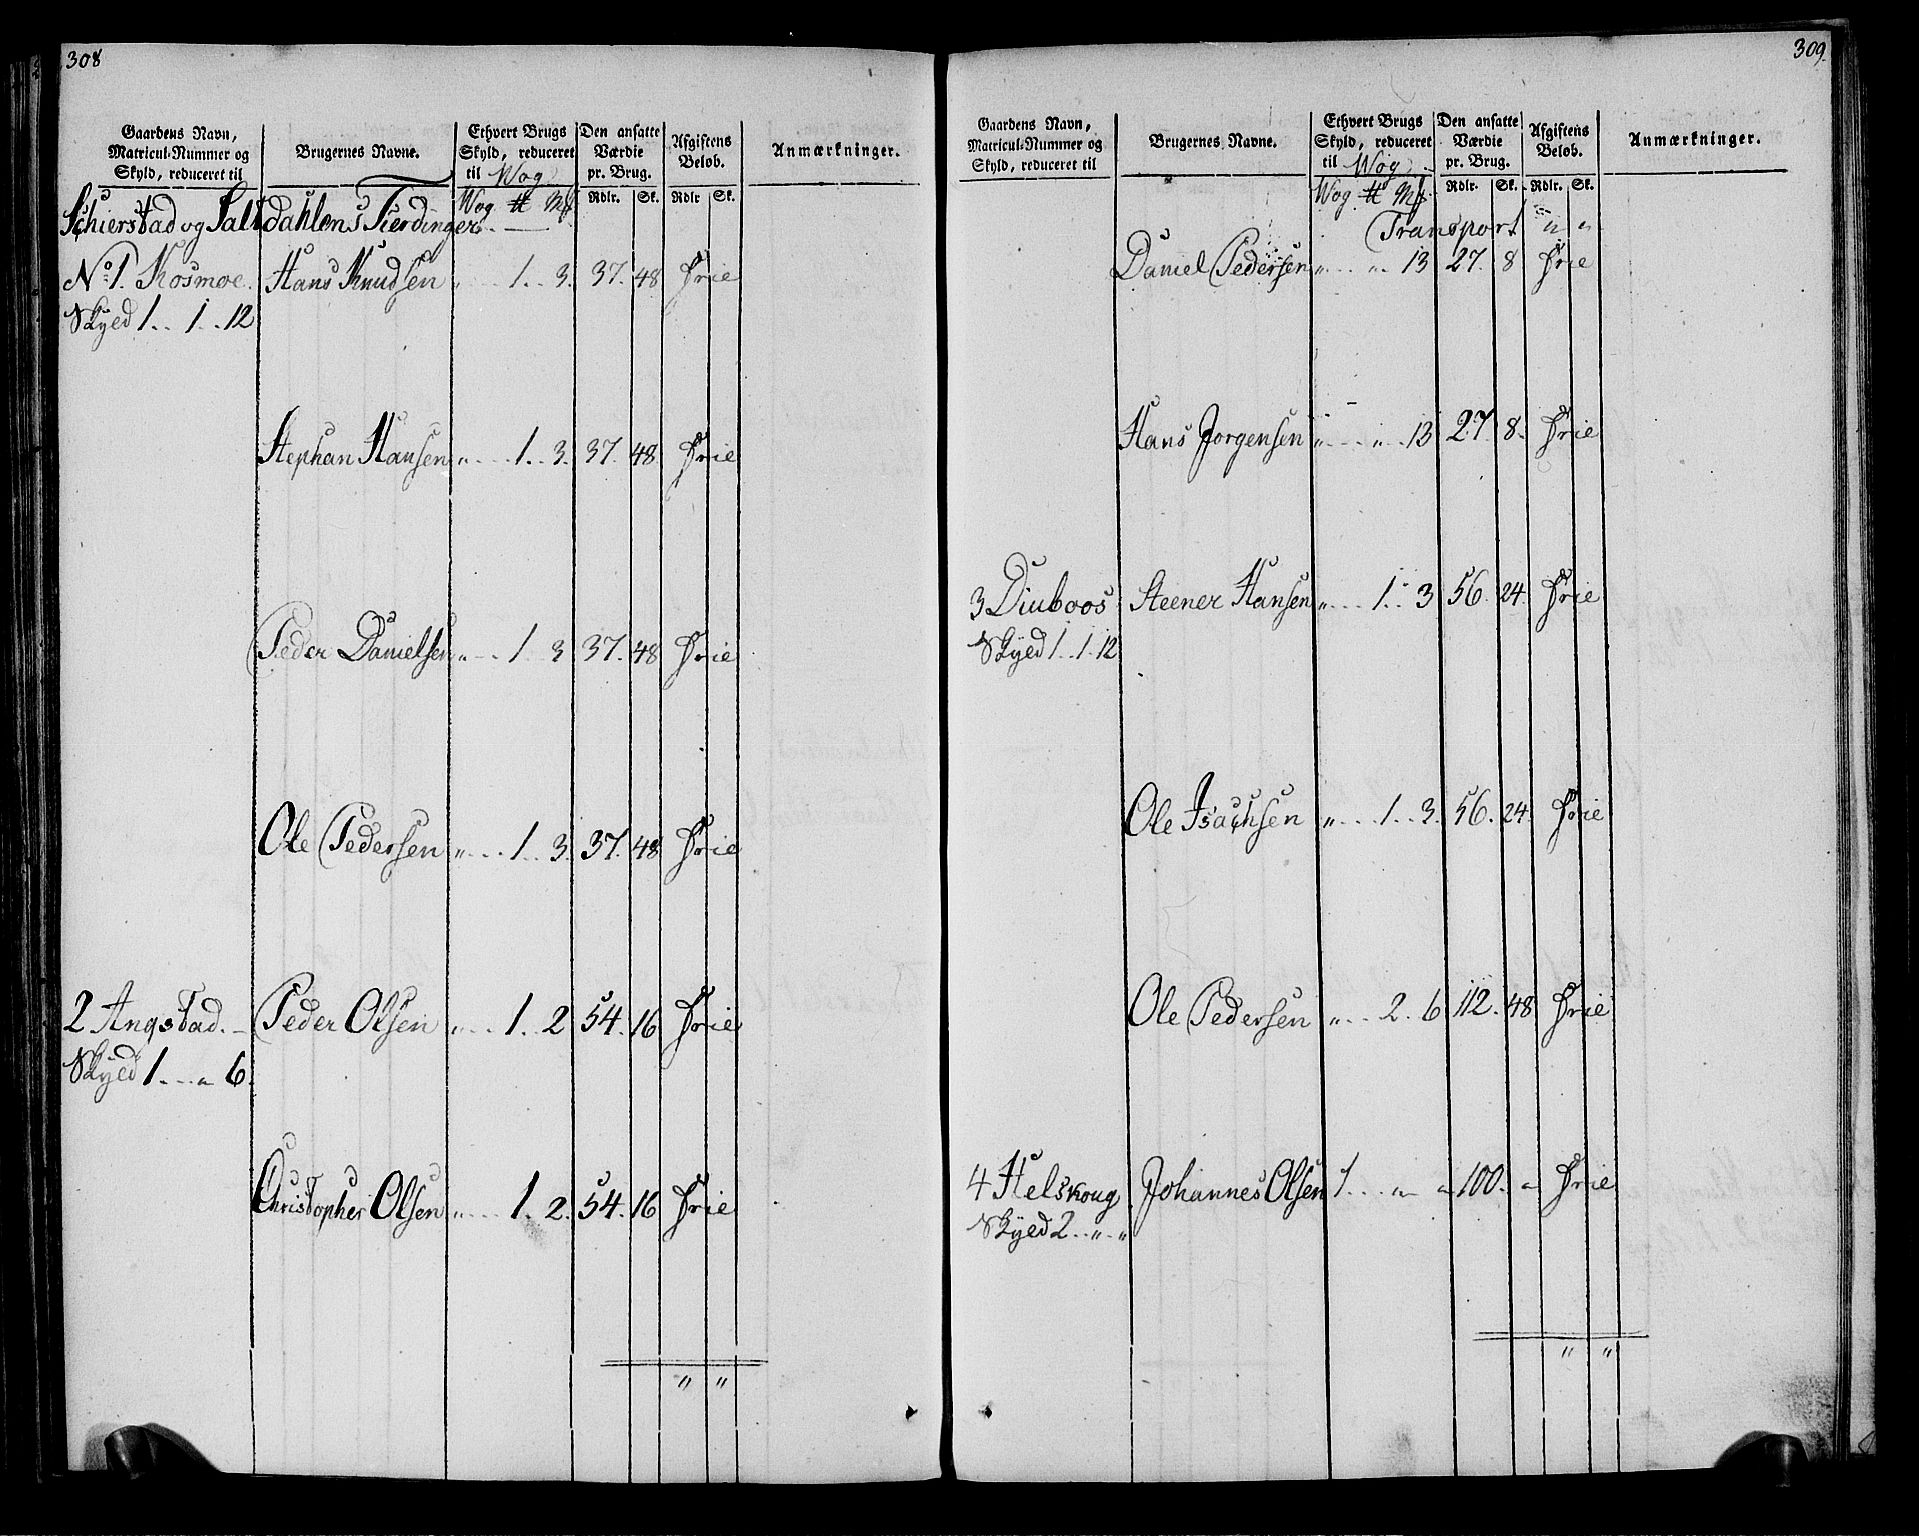 308
Gaardens Navn, Matricul-Nummer og Skyld, reduceret til | Brugernes Navne. | Ethvert Brugs Skyld, reduceret til Wog | Den ansatte Værdie pr. Brug. | Afgiftens Beløb. | Anmærkninger.
Wog ℔ Mk | Rdlr. Sk. | Rdlr Sk.
Schierstad og Saltdahlens Fierdinger
No 1. Kosmoe. Hans Knudsen " 1. 3. 37. 48 Frie
Skyld 1 . . 1 . . 12
Stephan Hansen " 1 . . 3. 37. 48 Frie
Peder Danielsen " 1 3 37. 48 Frie
Ole Pedersen " 1 . . 3. 37. 48 Frie
2 Angstad. Peder Olsen " 1 . . 2 54. 16 Frie
Skyld 1 . . . " 6.
Christopher Olsen " 1. 2. 54. 16 Frie
" "
309.
Gaardens Navn, Matricul-Nummer og Skyld, reduceret til | Brugernes Navne. | Ethvert Brugs Skyld, reduceret til Wog | Den ansatte Værdie pr. Brug. | Afgiftens Beløb. | Anmærkninger.
Wog ℔ Mk. | Rdlr. Sk. | Rdlr. Sk.
Transport " "
Daniel Pedersen " " 13 27. 8 Frie
Hans Jorgensen " " 13 27. 8. Frie
3 Diuboos Steener Hansen " 1 . . 3 56. 24. Frie
Skyed 1 . . 1. 12
Ole Isachsen " 1 . . 3. 56. 24. Frie
Ole Pedersen " 2. 6 112. 48 Frie
4 Helskoug Johannes Olsen 1 . . . " " 100. " Frie
Skyed 2 . . " . "
" "